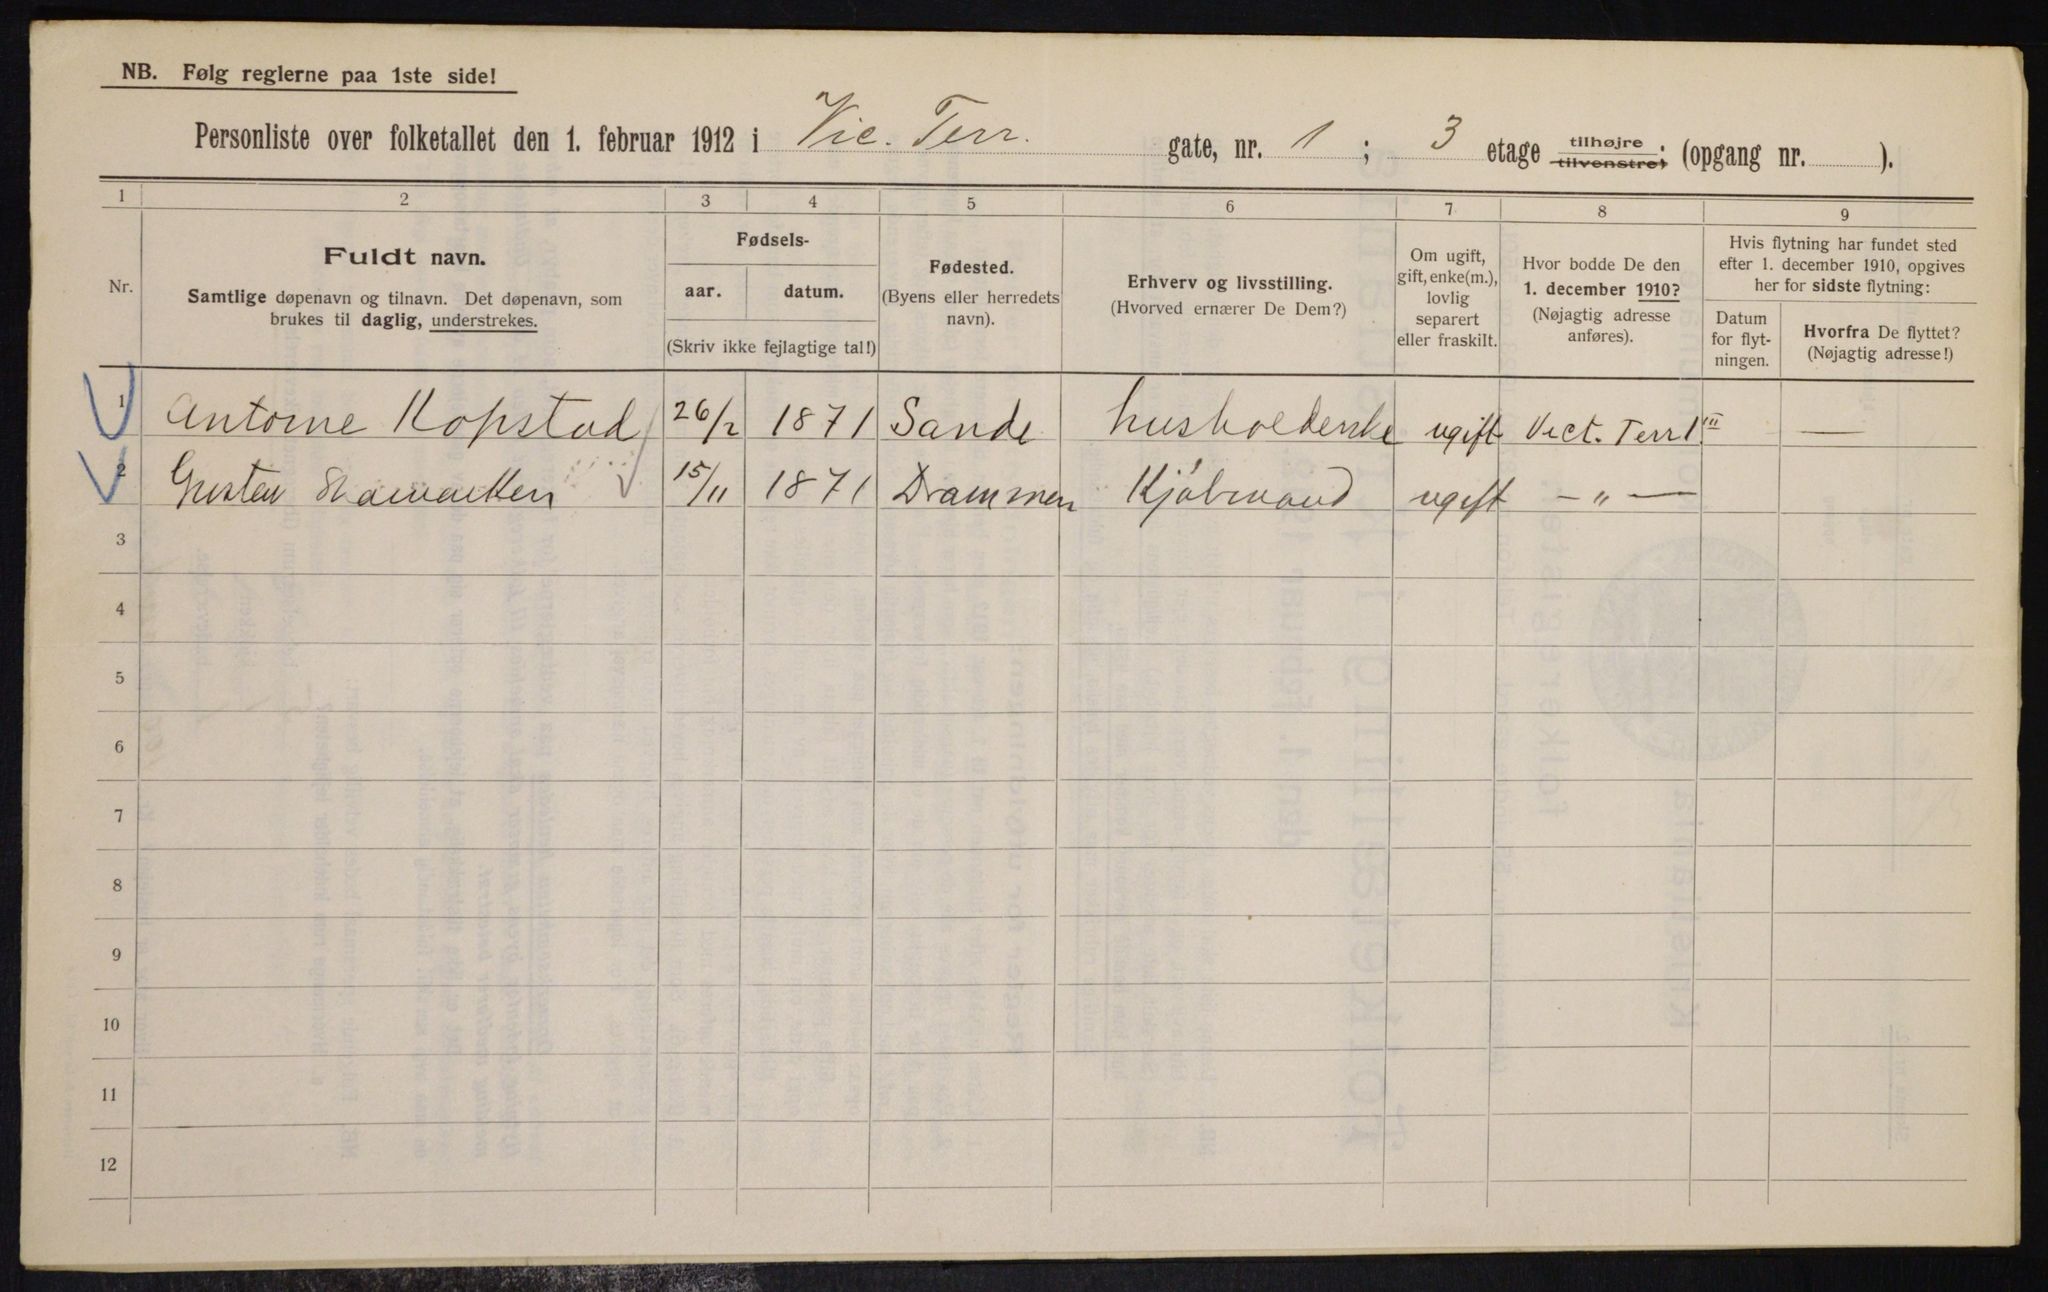 NB. Følg reglerne paa 1ste side!
Personliste over folketallet den 1. februar 1912 i Vic. Terr. gate, nr. 1 ; 3 etage tilhøjre tilvenstre; (opgang nr. ).
1 2 3 4 5 6 7 8 9
Nr.
Fuldt navn.
Samtlige døpenavn og tilnavn. Det døpenavn, som
brukes til daglig, understrekes.
Fødsels-
aar. datum.
(Skriv ikke fejlagtige tal!)
Fødested.
(Byens eller herredets
navn).
Erhverv og livsstilling.
(Hvorved ernærer De Dem?)
Om ugift,
gift, enke(m.),
lovlig
separert
eller fraskilt.
Hvor bodde De den
1. december 1910?
(Nøjagtig adresse
anføres).
Hvis flytning har fundet sted
efter 1. december 1910, opgives
her for sidste flytning:
Datum
for flyt-
ningen.
Hvorfra De flyttet?
(Nøjagtig adresse!)
1 Antorne Kopstad 26/2 1871 Sande husholderske ugift Vict. Terr 1 III —
2 Gustav 15/11 1871 Drammen Kjøbmand ugift — „ —
3
4
5
6
7
8
9
10
11
12